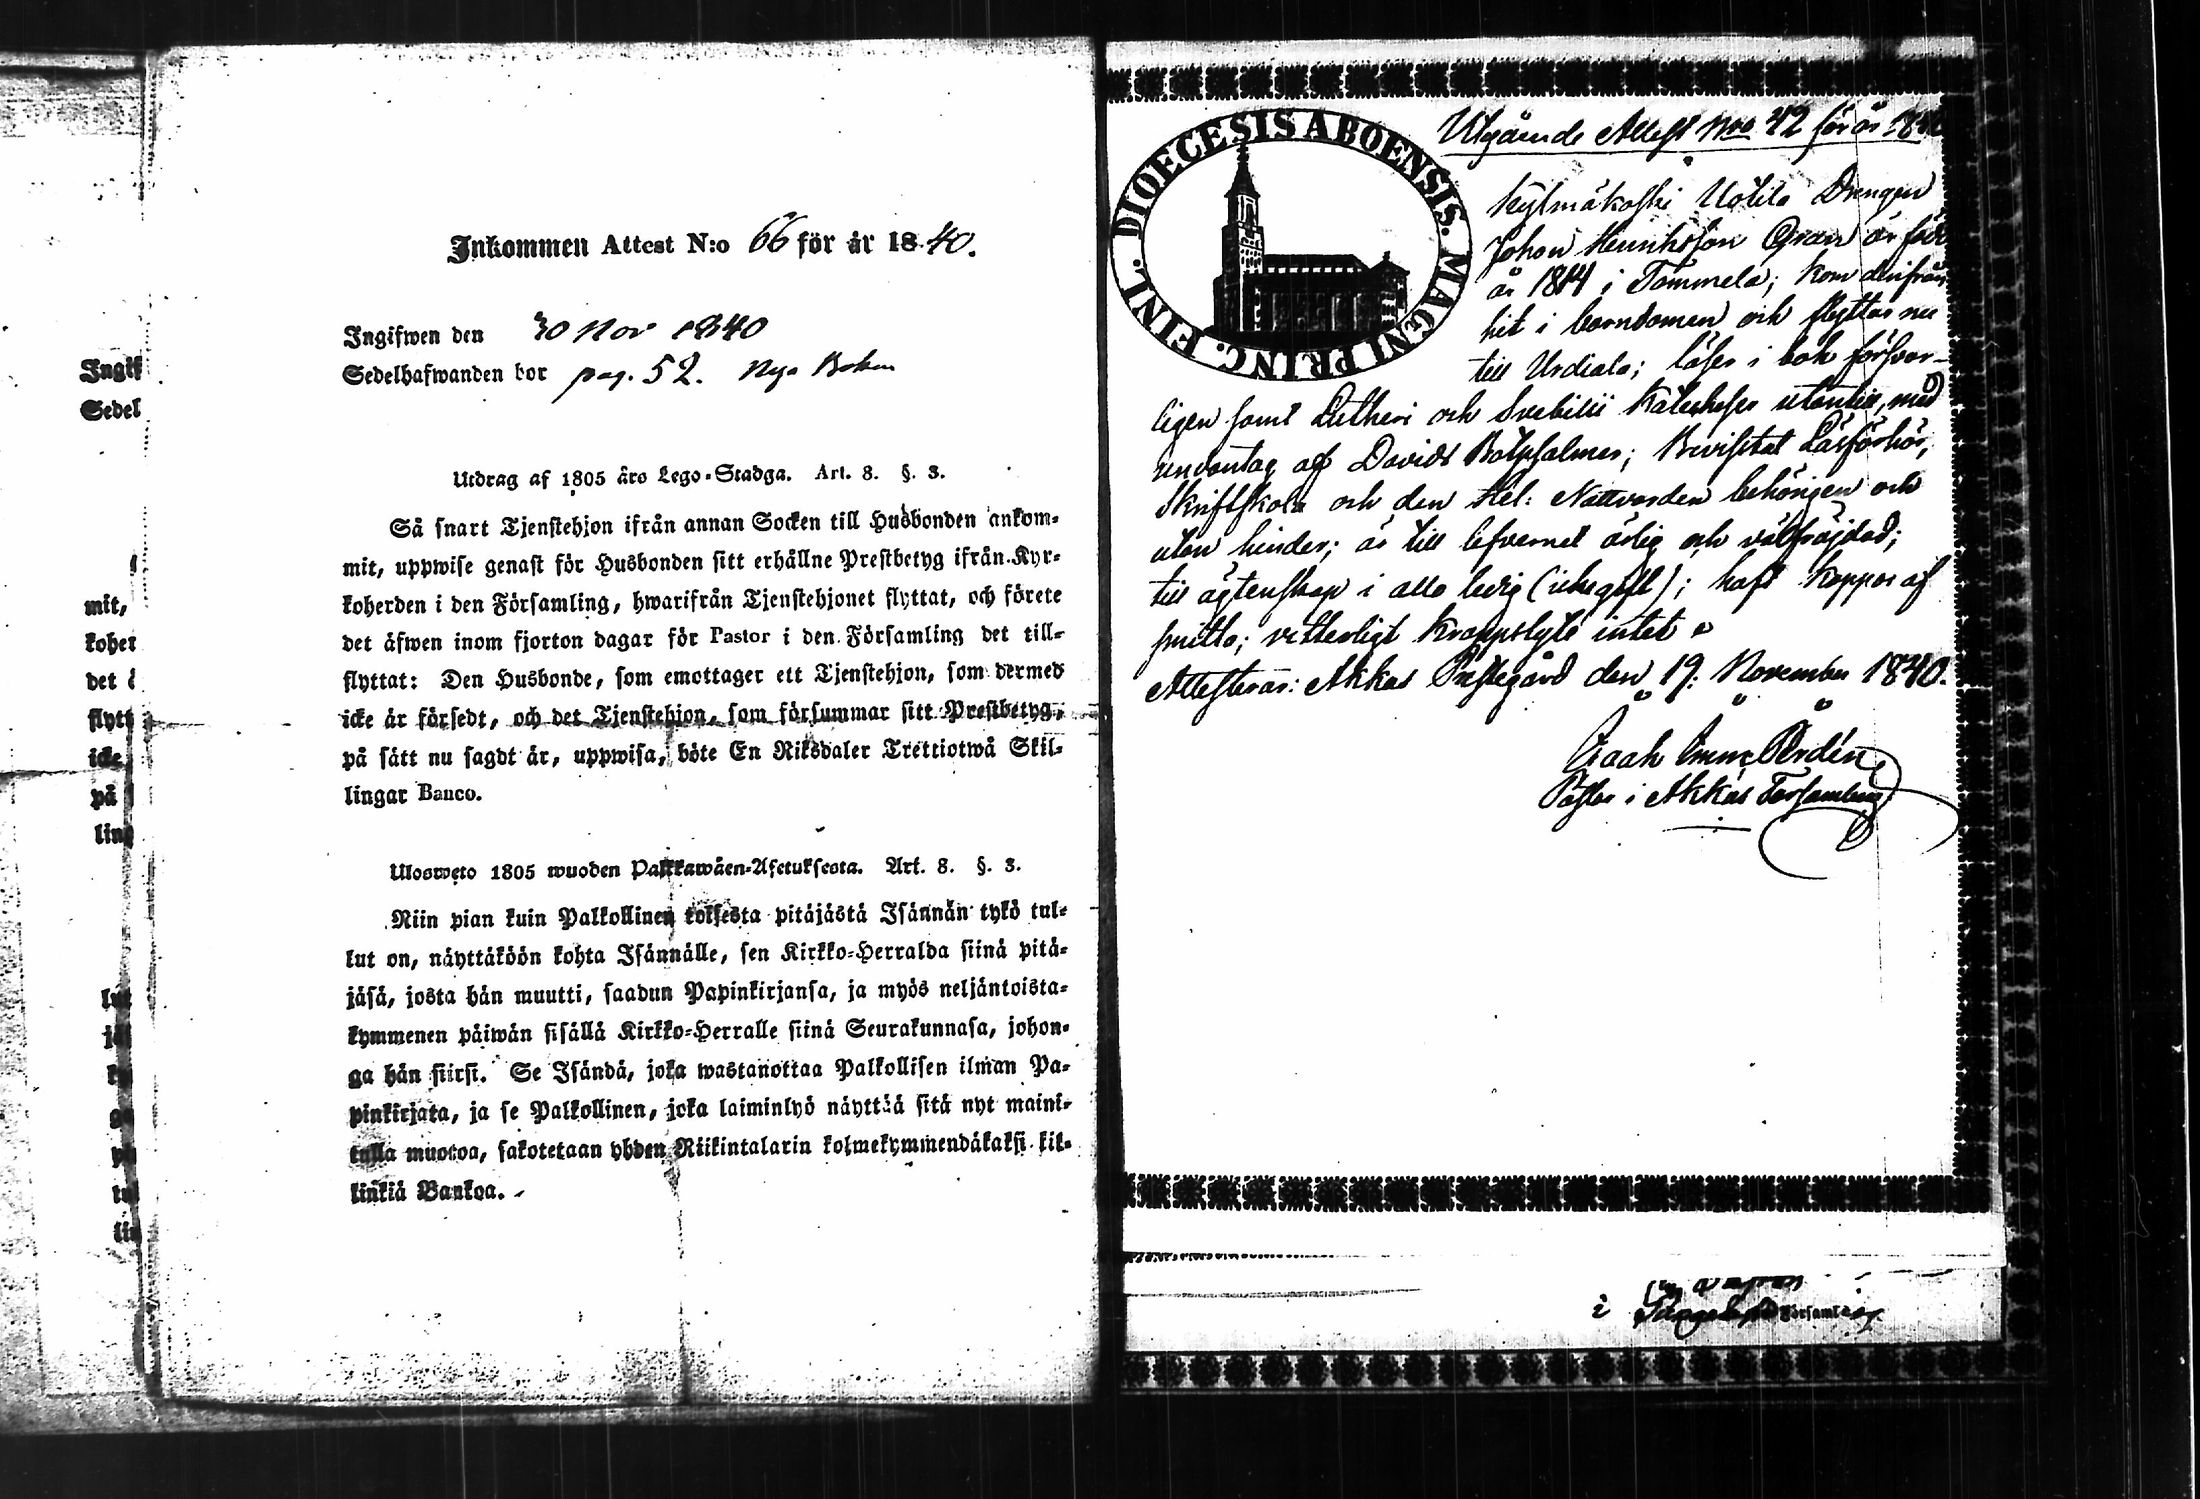 Inkommen Attest N:o 66 för år 1840.
Ingifwen den 30 Nov 1840
Sedelhafwanden bor pag. 52. Nya Boken
Utdrag af 1805 års Lego-Stadga. Art. 8. §. 3.
Så snart Tjenstehjon ifrån annan Socken till Husbonden ankom-
mit, uppwise genast för Husbonden sitt erhållne Prestbetyg ifrån Kyr-
koherden i den Församling, hwarifrån Tjenstehjonet flyttat, och förete
det äfwen inom fjorton dagar för Pastor i den Församling det till-
flyttat: Den Husbonde, som emottager ett Tjenstehjon, som dermed
icke är försedt, och det Tjenstehjon, som försummar sitt Prestbetyg,
på sätt nu sagdt är, uppwisa, böte En Riksdaler Trettiotwå Skil-
lingar Banco.
Ulosweto 1805 wuoden Palkkawäen-Asetuksesta. Art. 8. §. 3.
Niin pian kuin Palkollinen toisesta pitäjästä Isännän tykö tul-
lut on, näyttäköön kohta Isännälle, sen Kirkko-Herralda siinä pitä-
jäsä, josta hän muutti, saadun Papinkirjansa, ja myös neljäntoista-
kymmenen päiwän sisällä Kirkko-Herralle siinä Seurakunnasa, johon-
ga hän siirsi. Se Isändä, joka wastanottaa Palkollisen ilman Pa-
pinkirjata, ja se Palkollinen, joka laiminlyö näyttää sitä nyt maini-
tulla muotoa, sakotetaan yhden Riikintalarin kolmekymmendäkaksi kil-
linkiä Bankoa.
Ingif
Sedel
mit,
koher
det ä
flytt
icke
på
ling
DIOECESIS ABOENSIS. MAGNI PRINC. FINL.
Utgående Attest Nro 42 för år 1840
Kylmäkoski Uotila Drengen
Johan Henriksson Gran är född
år 1814 i Tammela; kom derifrån
hit i barndomen och flyttar nu
till Urdiala; läser i bok försvar-
ligen samt Lutheri och Svebilii Katecheser utantill, med
undantag af Davids Botpsalmer; Bevistat Läsförhör,
Skriftskola och den Hel: Nattvarden behörigen och
utan hinder; är till lefvernet ärlig och välfräjdad;
till ägtenskap i allo ledig (icke gift); haft koppor af
smitta; vetterligt kroppslyte intet
Attesterar: Akkas Prestegård den 19. November 1840.
Isaak Imm:
Pastor i Akkas Församling
i
Församling